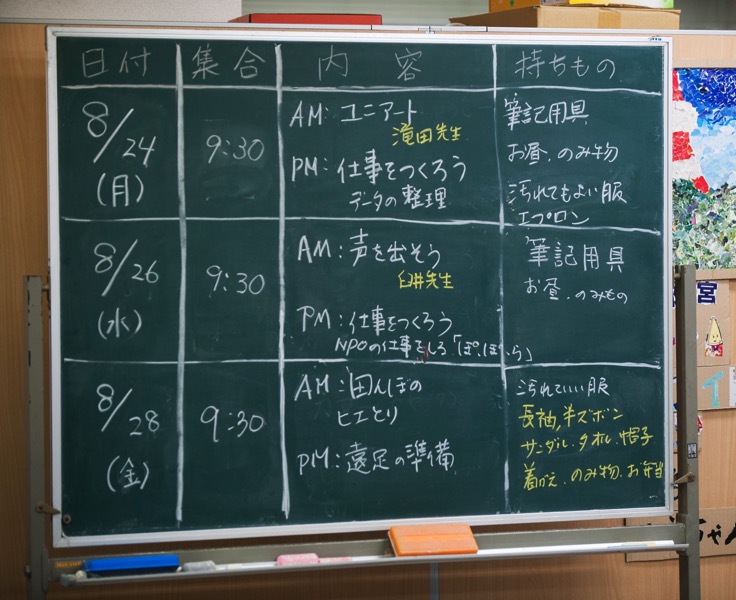 日付 集合 内容 持ちもの
8/24
(月)
9:30
AM: ユニアート
滝田先生
PM: 仕事をつくろう
データの整理
筆記用具
お昼、のみ物
汚れてもよい服
エプロン
8/26
(水)
9:30
AM: 声を出そう
臼井先生
PM: 仕事をつくろう
NPOの仕事をしろ「ぽ.ぽ.ら」
筆記用具
お昼、のみもの
8/28
(金)
9:30
AM: 田んぼの
ヒエとり
PM: 遠足の準備
汚れていい服
長袖,半ズボン
サンダル、タオル、帽子
着がえ、のみ物、お弁当
宮
ちゃん